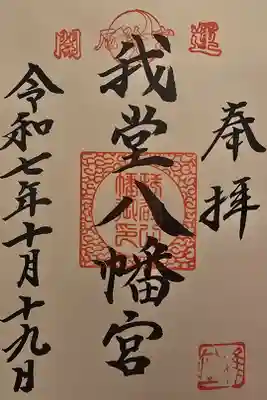 奉拝
我堂八幡宮
令和七年十月十九日
開運